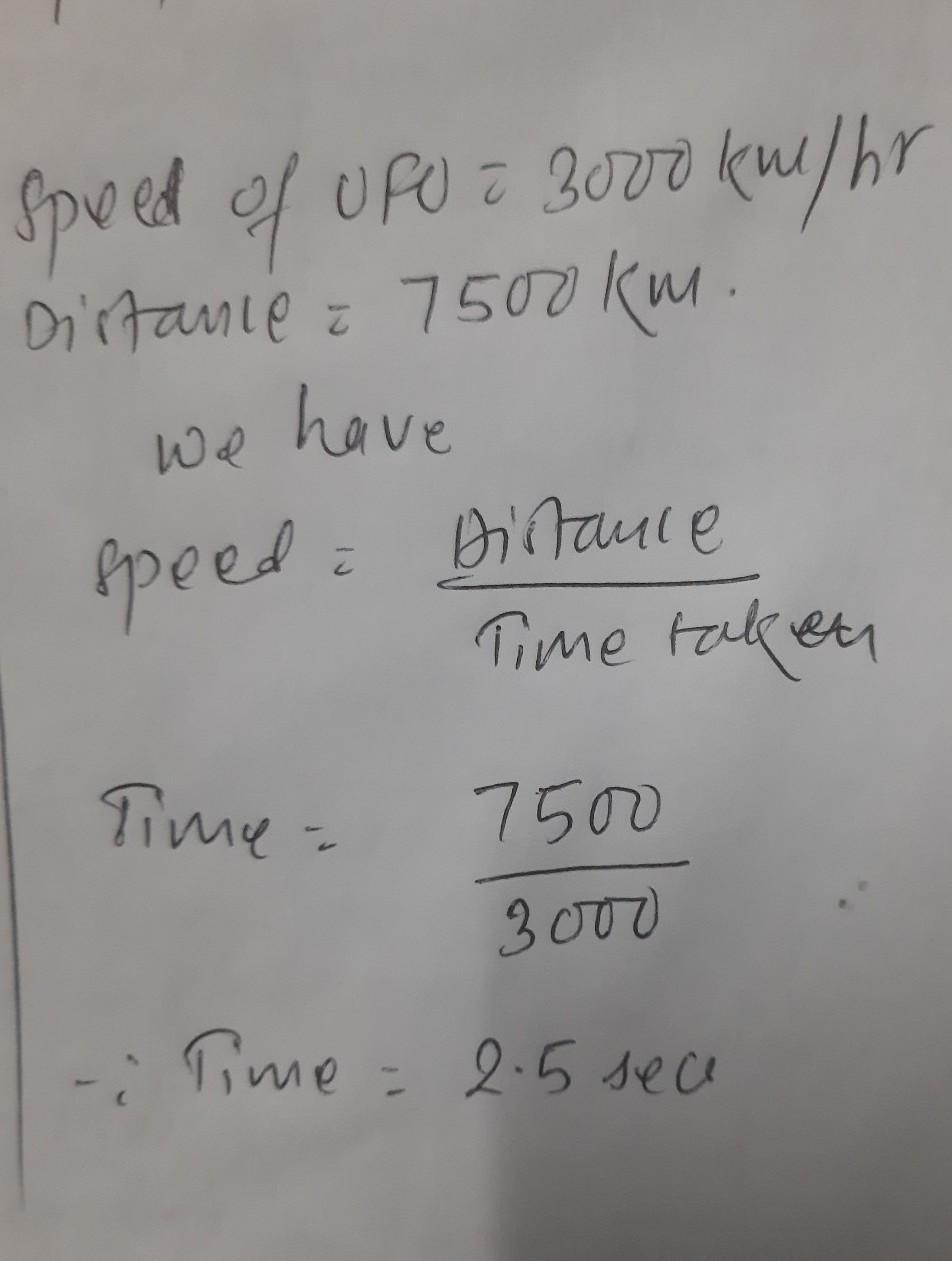 Speed of UFO = 3000 km/hr
Distance = 7500 km.
we have
speed = Distance
Time taken
Time = 7500
3000
∴ Time = 2.5 sec